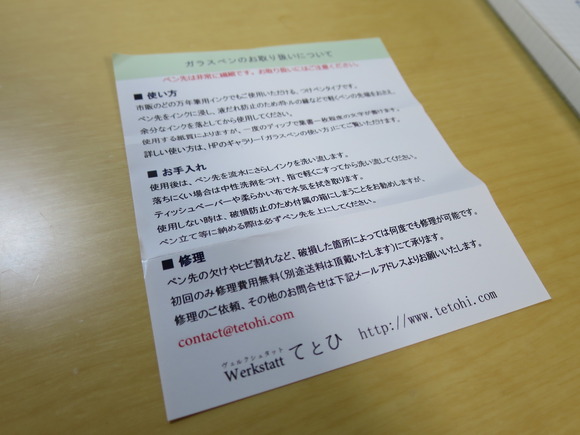 ガラスペンのお取り扱いについて
ペン先は非常に繊細です。お取り扱いにはご注意ください。
■ 使い方
市販のどの万年筆用インクでもご使用いただける、つけペンタイプです。
ペン先をインクに浸し、液だれ防止のためボトルの縁などで軽くペンの先端をおさえ、
余分なインクを落としてから使用してください。
使用する紙質によりますが、一度のディップで葉書一枚程度の文字が書けます。
詳しい使い方は、HPのギャラリー「ガラスペンの使い方」にてご覧いただけます。
■ お手入れ
使用後は、ペン先を流水にさらしインクを洗い流します。
落ちにくい場合は中性洗剤をつけ、指で軽くこすってから洗い流してください。
ティッシュペーパーや柔らかい布で水気を拭き取ります。
使用しない時は、破損防止のため付属の箱にしまうことをお勧めしますが、
ペン立て等に納める際は必ずペン先を上にしてください。
■ 修理
ペン先の欠けやヒビ割れなど、破損した箇所によっては何度でも修理が可能です。
初回のみ修理費用無料(別途送料は頂戴いたします)にて承ります。
修理のご依頼、その他のお問合せは下記メールアドレスよりお願いいたします。
contact@tetohi.com
ヴェルクシュタット
Werkstatt てとひ http://www.tetohi.com